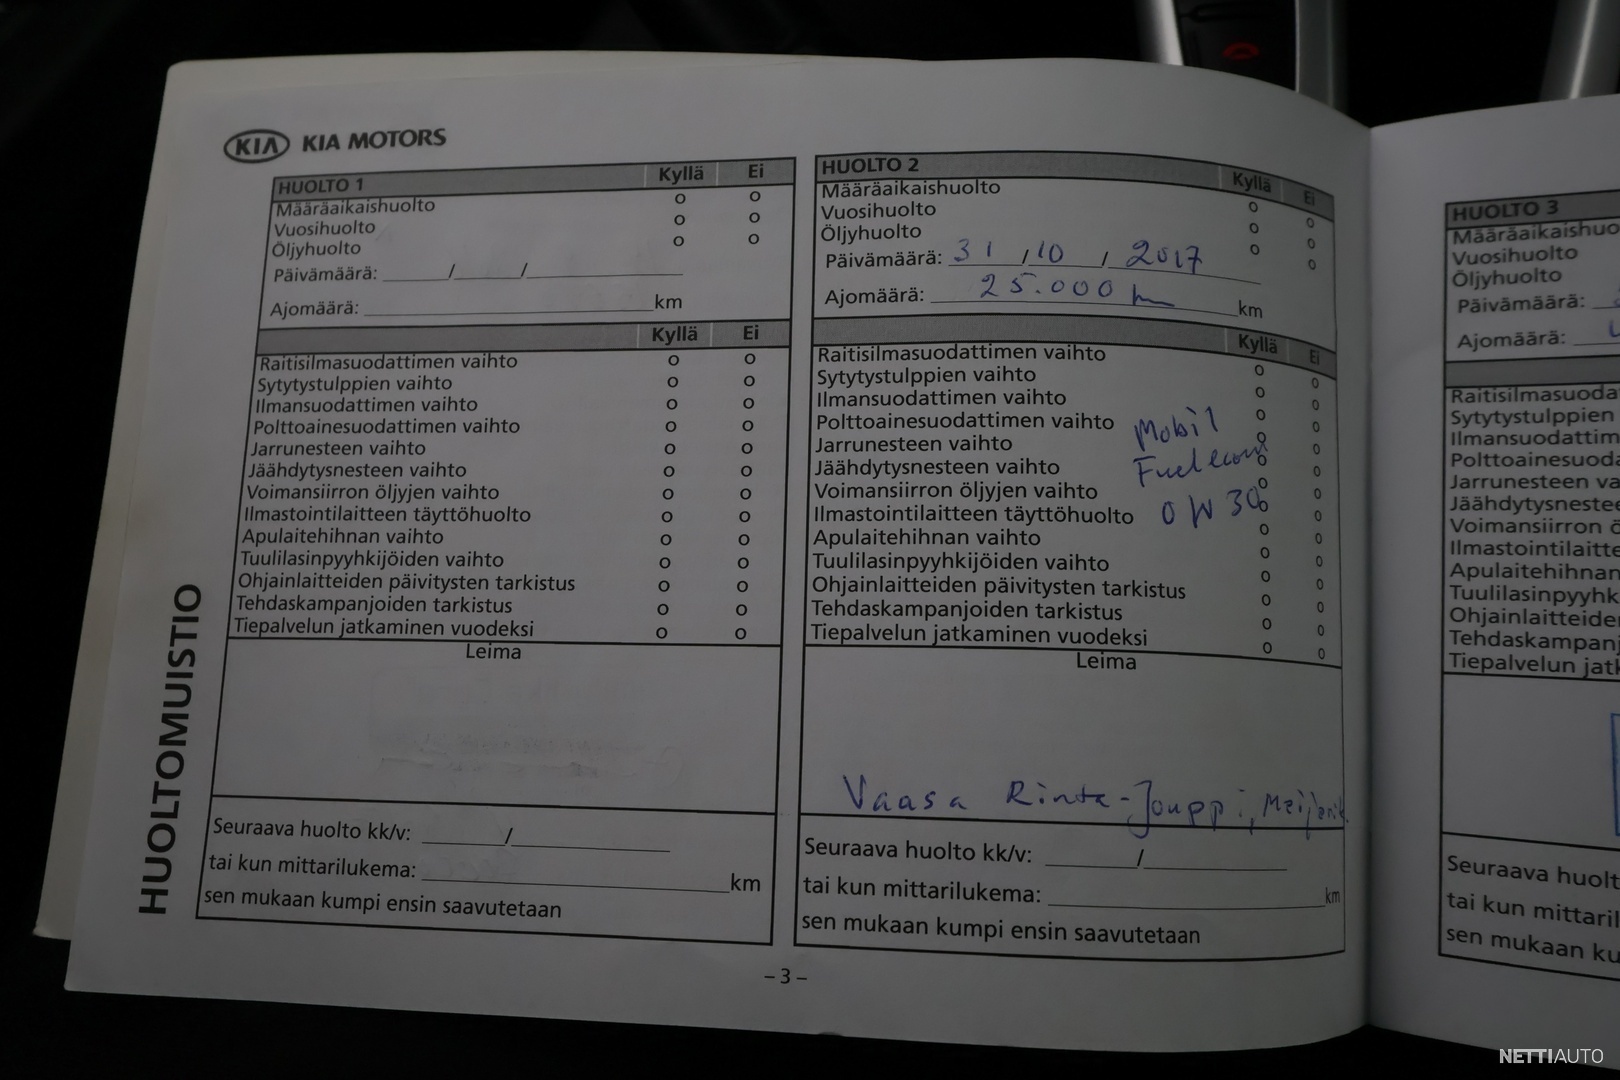 KIA KIA MOTORS
HUOLTOMUISTIO
HUOLTO 1 Kyllä Ei
Määräaikaishuolto o o
Vuosihuolto o o
Öljyhuolto o o
Päivämäärä: ______/______/______________
Ajomäärä: __________________________ km
Kyllä Ei
Raitisilmasuodattimen vaihto o o
Sytytystulppien vaihto o o
Ilmansuodattimen vaihto o o
Polttoainesuodattimen vaihto o o
Jarrunesteen vaihto o o
Jäähdytysnesteen vaihto o o
Voimansiirron öljyjen vaihto o o
Ilmastointilaitteen täyttöhuolto o o
Apulaitehihnan vaihto o o
Tuulilasinpyyhkijöiden vaihto o o
Ohjainlaitteiden päivitysten tarkistus o o
Tehdaskampanjoiden tarkistus o o
Tiepalvelun jatkaminen vuodeksi o o
Leima
Seuraava huolto kk/v: _______/______________
tai kun mittarilukema: __________________________ km
sen mukaan kumpi ensin saavutetaan
HUOLTO 2 Kyllä Ei
Määräaikaishuolto o o
Vuosihuolto o o
Öljyhuolto o o
Päivämäärä: 31 / 10 / 2017
Ajomäärä: 25.000 km km
Kyllä Ei
Raitisilmasuodattimen vaihto o o
Sytytystulppien vaihto o o
Ilmansuodattimen vaihto o o
Polttoainesuodattimen vaihto Mobil o o
Jarrunesteen vaihto o o
Jäähdytysnesteen vaihto Fuel econ o o
Voimansiirron öljyjen vaihto o o
Ilmastointilaitteen täyttöhuolto 0W30 o o
Apulaitehihnan vaihto o o
Tuulilasinpyyhkijöiden vaihto o o
Ohjainlaitteiden päivitysten tarkistus o o
Tehdaskampanjoiden tarkistus o o
Tiepalvelun jatkaminen vuodeksi o o
Leima
Vaasa Rinta-Jouppi,
Seuraava huolto kk/v: _______/______________
tai kun mittarilukema: __________________________ km
sen mukaan kumpi ensin saavutetaan
HUOLTO 3
Määräaikaishuo
Vuosihuolto
Öljyhuolto
Päivämäärä:
Ajomäärä:
Raitisilmasuoda
Sytytystulppien
Ilmansuodattim
Polttoainesuoda
Jarrunesteen va
Jäähdytysneste
Voimansiirron ö
Ilmastointilaitte
Apulaitehihnan
Tuulilasinpyyhk
Ohjainlaitteide
Tehdaskampanj
Tiepalvelun jatk
Seuraava huolt
tai kun mittaril
sen mukaan ku
– 3 –
NETTIAUTO